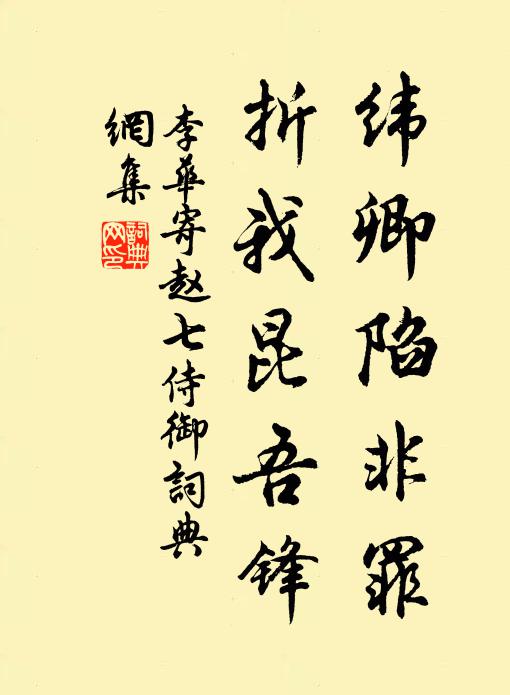 纬卿陷非罪
折我昆吾锋
李華寄赵七侍御詞典
網集
詞典网印